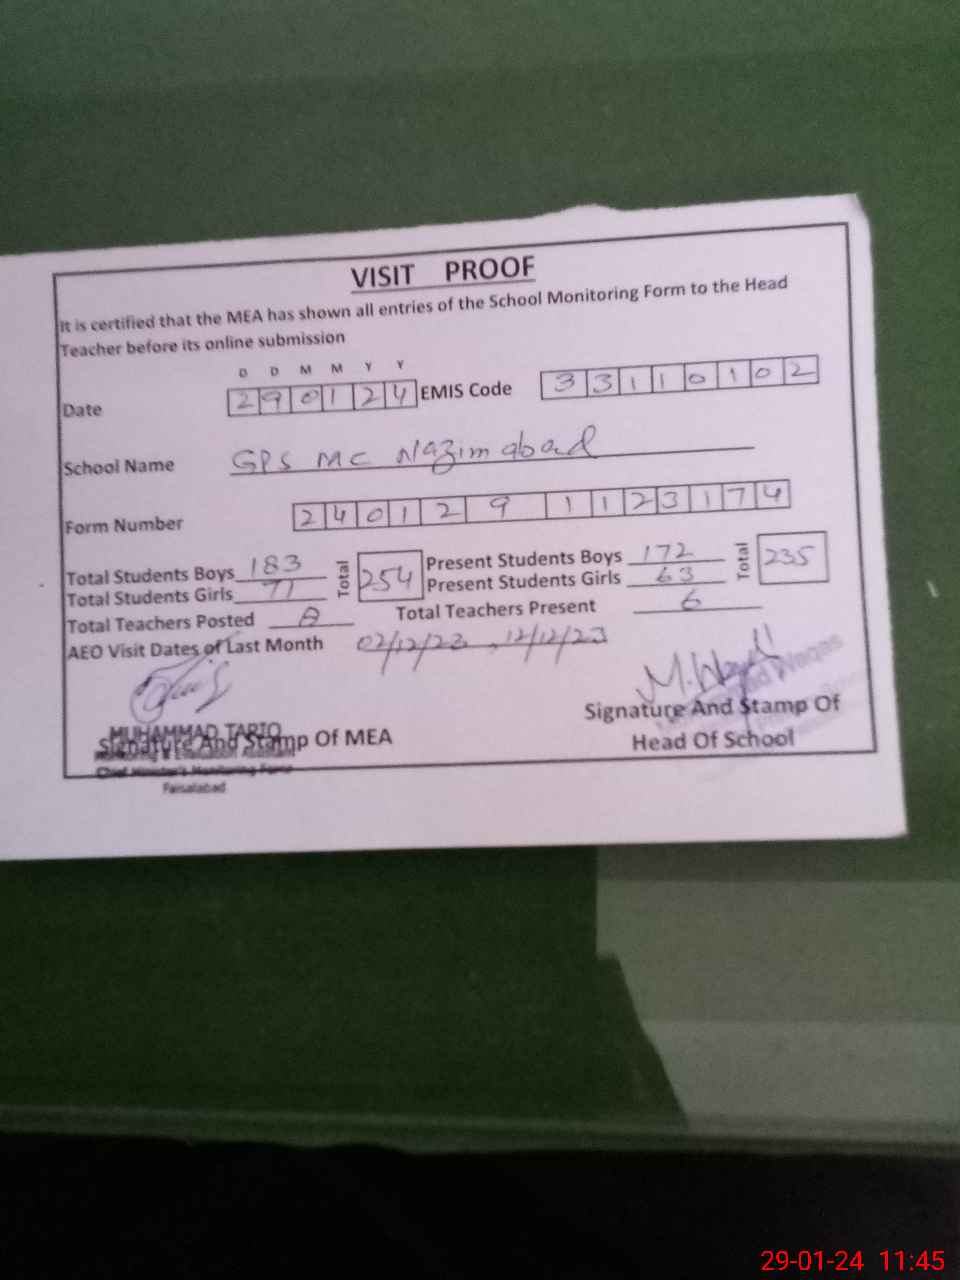 VISIT PROOF
It is certified that the MEA has shown all entries of the School Monitoring Form to the Head
Teacher before its online submission
D D M M Y Y
Date 2 9 0 1 2 4 EMIS Code 3 3 1 1 0 1 0 2
School Name GPS MC Nazimabad
Form Number 2 4 0 1 2 9 1 1 2 3 1 7 4
Total Students Boys 183 Total 254 Present Students Boys 172 Total 235
Total Students Girls 71 Present Students Girls 63
Total Teachers Posted 8 Total Teachers Present 6
AEO Visit Dates of Last Month 02/12/23, 12/12/23
M. Waqas
Signature And Stamp Of
Head Of School
MUHAMMAD TARIQ
Signature And Stamp Of MEA
Monitoring & Evaluation Assistant
Chief Minister's Monitoring Force
Faisalabad
29-01-24 11:45